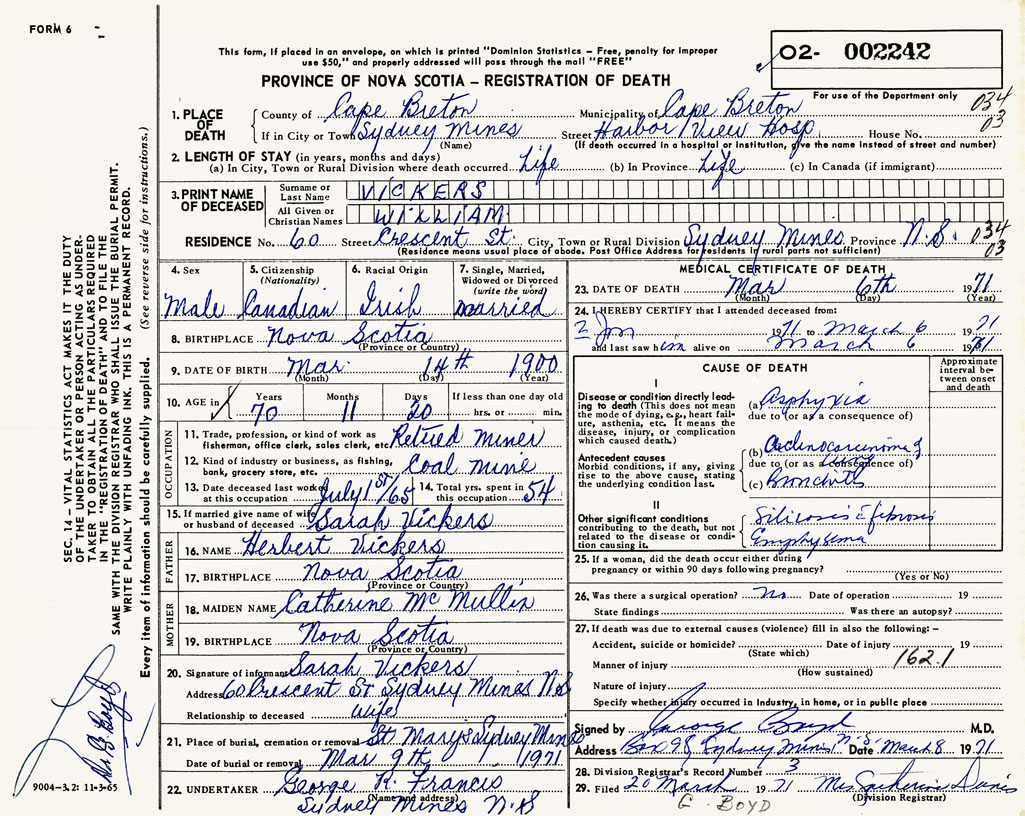 FORM 6
This form, if placed in an envelope, on which is printed "Dominion Statistics – Free, penalty for improper
use $50," and properly addressed will pass through the mail "FREE"
PROVINCE OF NOVA SCOTIA – REGISTRATION OF DEATH
02- 002242
For use of the Department only
034
03
1. PLACE OF DEATH
County of Cape Breton Municipality of Cape Breton
If in City or Town Sydney Mines Street Harbor View Hosp. House No.
(Name) (If death occurred in a hospital or institution, give the name instead of street and number)
2. LENGTH OF STAY (in years, months and days)
(a) In City, Town or Rural Division where death occurred Life (b) In Province Life (c) In Canada (if immigrant)
3. PRINT NAME OF DECEASED
Surname or Last Name VICKERS
All Given or Christian Names WILLIAM
RESIDENCE No. 60 Street Crescent St. City, Town or Rural Division Sydney Mines Province N.S. 034
03
(Residence means usual place of abode. Post Office Address for residents in rural parts not sufficient)
4. Sex
Male
5. Citizenship (Nationality)
Canadian
6. Racial Origin
Irish
7. Single, Married, Widowed or Divorced (write the word)
married
8. BIRTHPLACE Nova Scotia
(Province or Country)
9. DATE OF BIRTH Mar. 14th 1900
(Month) (Day) (Year)
10. AGE in Years Months Days If less than one day old
70 11 20 hrs. or min.
OCCUPATION
11. Trade, profession, or kind of work as fisherman, office clerk, sales clerk, etc. Retired miner
12. Kind of industry or business, as fishing, bank, grocery store, etc. Coal mine
13. Date deceased last worked at this occupation July 1st/65 14. Total yrs. spent in this occupation 54
15. If married give name of wife or husband of deceased Sarah Vickers
FATHER
16. NAME Herbert Vickers
17. BIRTHPLACE Nova Scotia
(Province or Country)
MOTHER
18. MAIDEN NAME Catherine McMullin
19. BIRTHPLACE Nova Scotia
(Province or Country)
20. Signature of informant Sarah Vickers
Address 60 Crescent St Sydney Mines N.S
Relationship to deceased wife
21. Place of burial, cremation or removal St. Mary's Sydney Mines
Date of burial or removal Mar 9th 1971
22. UNDERTAKER George R. Francis
(Name and address)
Sydney Mines N.S
MEDICAL CERTIFICATE OF DEATH
23. DATE OF DEATH Mar 6th 1971
(Month) (Day) (Year)
24. I HEREBY CERTIFY that I attended deceased from:
2 Jan 1971 to March 6 1971
and last saw him alive on March 6 1971
CAUSE OF DEATH
Approximate interval between onset and death
I
Disease or condition directly leading to death (This does not mean the mode of dying, e.g., heart failure, asthenia, etc. It means the disease, injury, or complication which caused death.)
(a) Asphyxia
due to (or as a consequence of)
Antecedent causes
Morbid conditions, if any, giving rise to the above cause, stating the underlying condition last.
(b) Adenocarcinoma of
due to (or as a consequence of) lung
(c) Bronchitis
II
Other significant conditions contributing to the death, but not related to the disease or condition causing it.
Silicosis & fibrosis
Emphysema
25. If a woman, did the death occur either during
pregnancy or within 90 days following pregnancy?
(Yes or No)
26. Was there a surgical operation? No. Date of operation 19
State findings Was there an autopsy?
27. If death was due to external causes (violence) fill in also the following: –
Accident, suicide or homicide? Date of injury 19
(State which)
162.1
Manner of injury
(How sustained)
Nature of injury
Specify whether injury occurred in Industry, in home, or in public place
Signed by George Boyd M.D.
Address Box 98 Sydney Mines N.S. Date March 8 1971
28. Division Registrar's Record Number 3
29. Filed 20 March 1971 Mrs Catherine Davis
(Division Registrar)
G. BOYD
SEC. 14 – VITAL STATISTICS ACT MAKES IT THE DUTY
OF THE UNDERTAKER OR PERSON ACTING AS UNDER-
TAKER TO OBTAIN ALL THE PARTICULARS REQUIRED
IN THE "REGISTRATION OF DEATH" AND TO FILE THE
SAME WITH THE DIVISION REGISTRAR WHO SHALL ISSUE THE BURIAL PERMIT.
WRITE PLAINLY WITH UNFADING INK. THIS IS A PERMANENT RECORD.
Every item of information should be carefully supplied. (See reverse side for instructions.)
Dr. G. Boyd
9004-3.2: 11-3-65